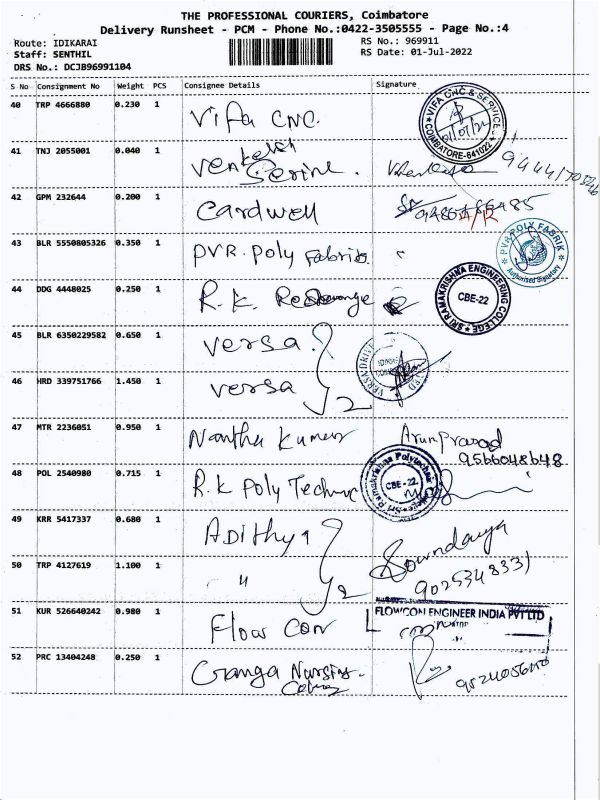 THE PROFESSIONAL COURIERS, Coimbatore
Delivery Runsheet - PCM - Phone No.:0422-3505555 - Page No.:4
Route: IDIKARAI
RS No.: 969911
Staff: SENTHIL
RS Date: 01-Jul-2022
DRS No.: DCJB96991104
S No Consignment No Weight PCS Consignee Details Signature
40 TRP 4666880 0.230 1 Vifa CNC.
VIFA CNC & SERVICE
COIMBATORE-641022
41 TNJ 2055001 0.040 1 Venkatesh
42 GPM 232644 0.200 1 Cardwell
43 BLR 5550805326 0.350 1 PVR. Poly Fabriks.
PVR POLY FABRIK
Authorised Signatory
44 DDG 4448025 0.250 1 R.K.
SRI RAMAKRISHNA ENGINEERING COLLEGE
CBE-22
45 BLR 6350229582 0.650 1 Versa.
46 HRD 339751766 1.450 1 Versa 2
47 MTR 2236051 0.950 1 Nantha Kumar Arun Prasad
9566048648
48 POL 2540980 0.715 1 R.K Poly Technic
Sri Ramakrishna Polytechnic
CBE-22.
49 KRR 5417337 0.680 1 Adithya
50 TRP 4127619 1.100 1 " 2 Soundarya
51 KUR 526640242 0.980 1 Flow Con
FLOWCON ENGINEER INDIA PVT LTD
52 PRC 13404248 0.250 1 Ganga Nursing